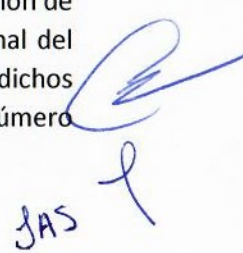 ión de
nal del
dichos
úmero
JAS